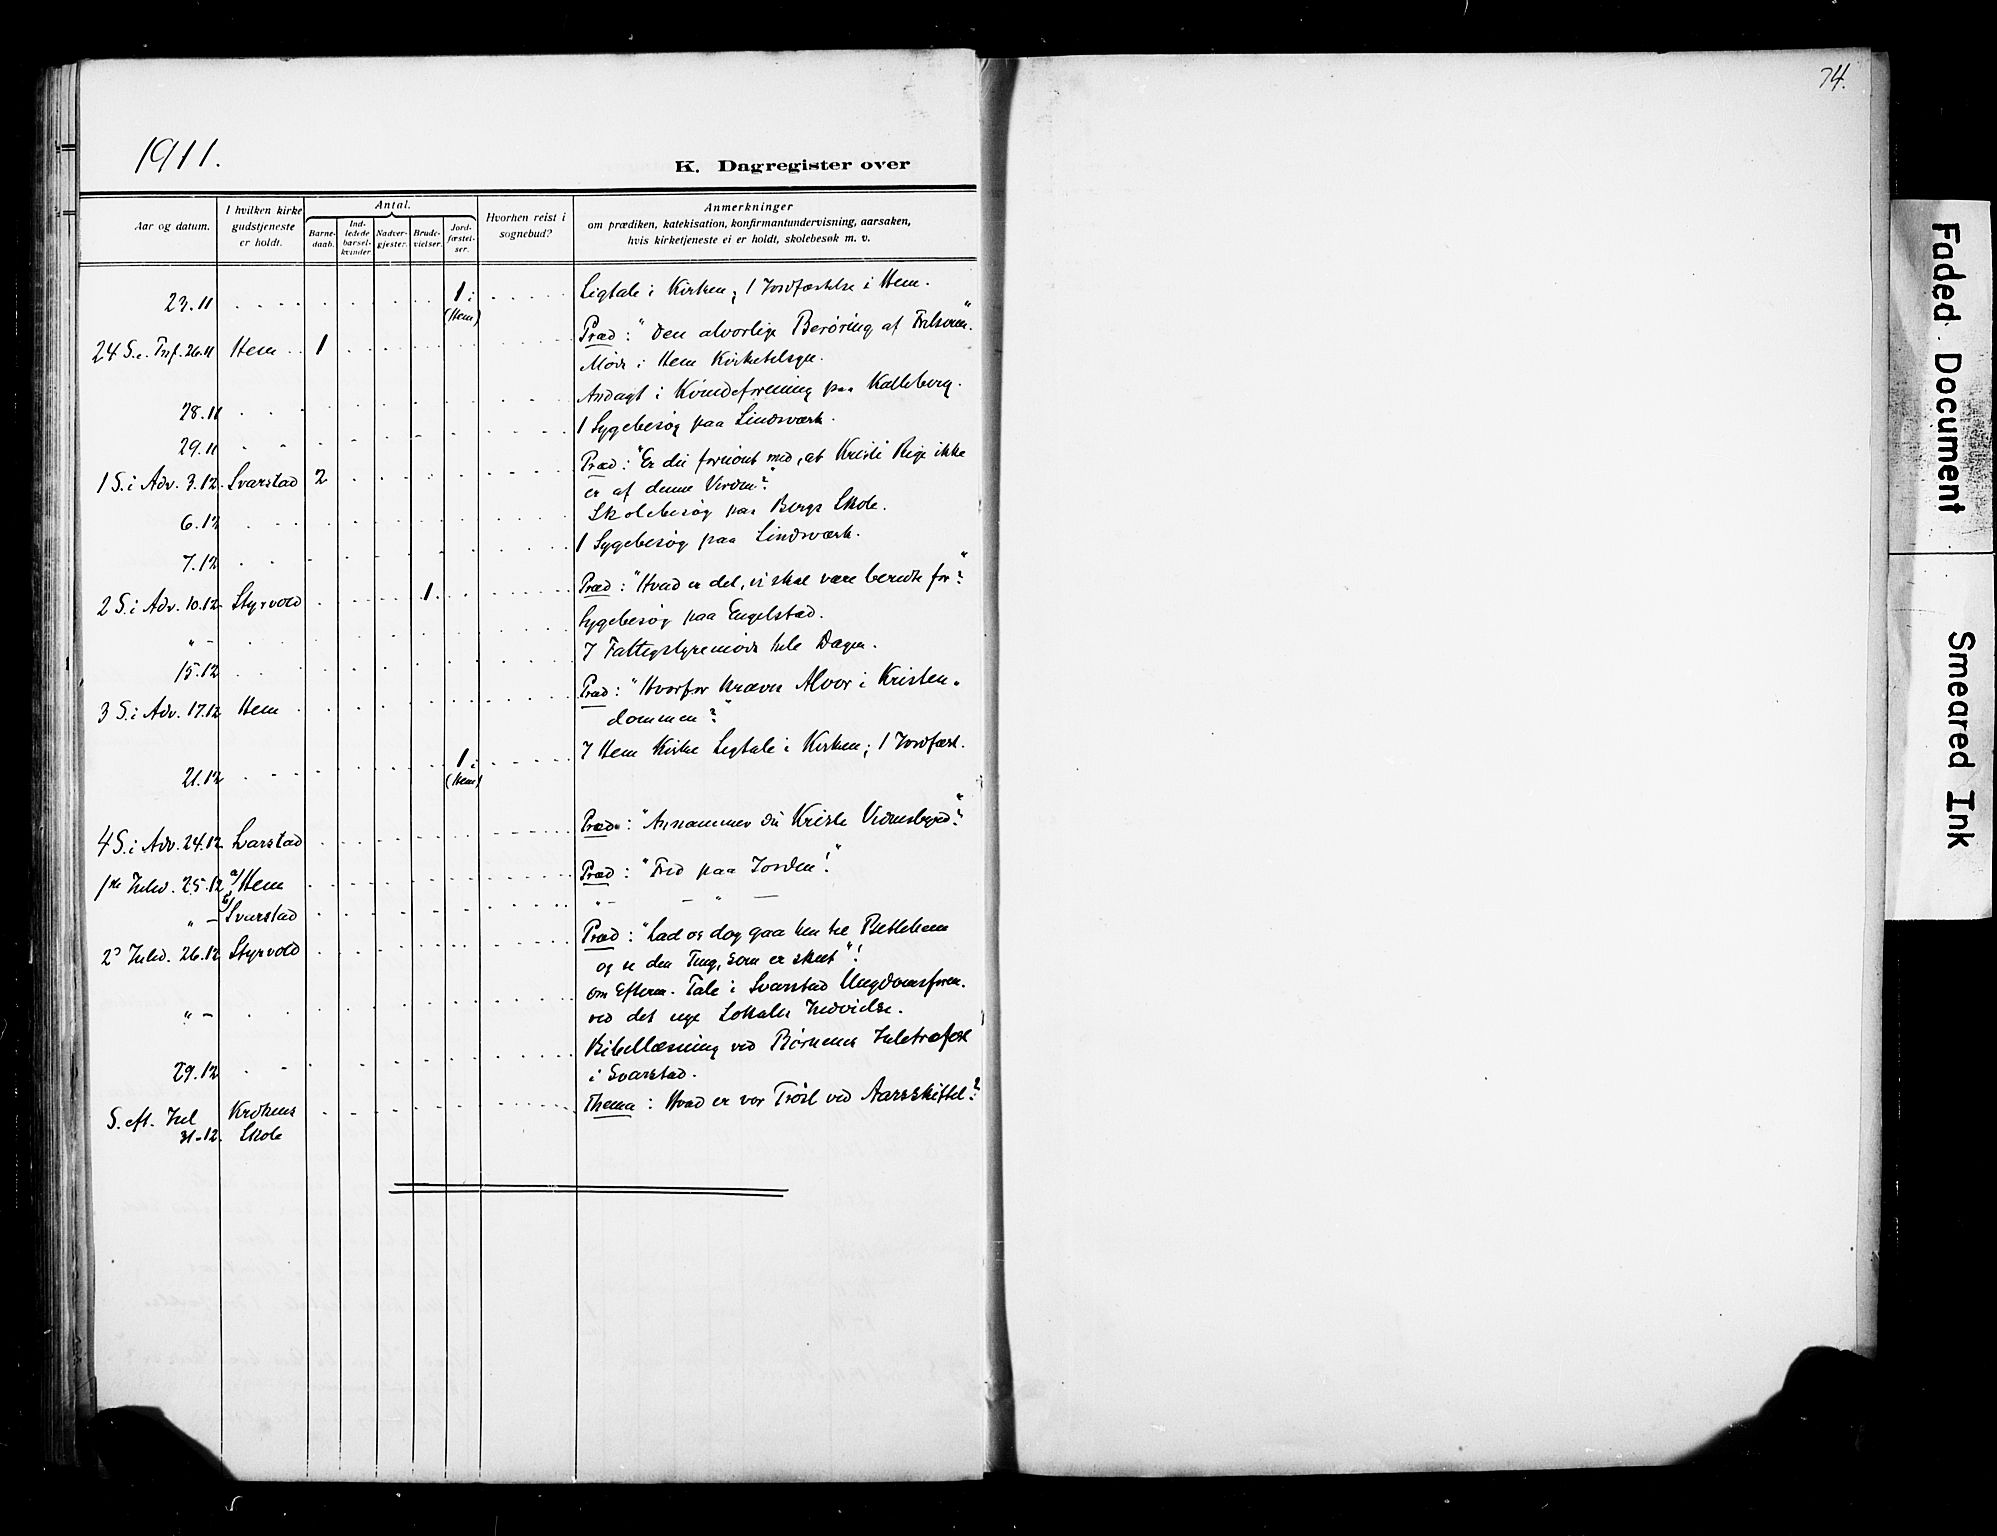 74.
1911.
K. Dagregister over
Aar og datum.
I hvilken kirke gudstjeneste er holdt.
Antal.
Barne-daab.
Ind-ledede barsel-kvinder
Nadver-gjester.
Brude-vielser.
Jord-fæstel-ser.
Hvorhen reist i sognebud?
Anmerkninger
om prædiken, katekisation, konfirmantundervisning, aarsaken,
hvis kirketjeneste ei er holdt, skolebesøk m. v.
23.11 1 i (Hem) Ligtale i Kirken; 1 Jordfæstelse i Hem.
24 S. e. Tref. 26.11 Hem 1 Præd: "Den alvorlige Berøring af Frelseren".
Møde i Hem Kirketilsyn.
28.11 Andagt i Kvindeforening paa Kalleberg.
29.11 1 Sygebesøg paa Lindsværk.
1 S. i Adv. 3.12. Svarstad 2 Præd: "Er du fornøiet med, at Kristi Rige ikke
er af denne Verden?"
6.12 Skolebesøg paa Bergs Skole.
7.12 1 Sygebesøg paa Lindsværk.
2 S. i Adv. 10.12. Styrvold 1. Præd: "Hvad er det, vi skal være beredte for?"
" – Sygebesøg paa Engelstad.
15.12 I Fattigstyremøde hele Dagen.
3 S. i Adv. 17.12 Hem Præd: "Hvorfor kræves Alvor i Kristen-
dommen?"
21.12 1 i (Hem) I Hem Kirke Ligtale i Kirken; 1 Jordfæst.
4 S. i Adv. 24.12 Svarstad Præd: "Annammer du Kristi Vidnesbyrd?"
1ste Juled. 25.12 a/ Hem Præd: "Fred paa Jorden!"
" – b/ Svarstad " – – " –
2d Juled. 26.12 Styrvold Præd: "Lad os dog gaa hen til Betlehem
og se den Ting, som er skeet"!
" – Om Efterm. Tale i Svarstad Ungdomsforen.
ved det nye Lokales Indvielse.
29.12 Bibellæsning ved Børnenes Juletræfest
i Svarstad.
S. eft. Jul Krokens Thema: Hvad er vor Trøst ved Aarsskiftet?
31-12. Skole
Faded Document
Smeared Ink